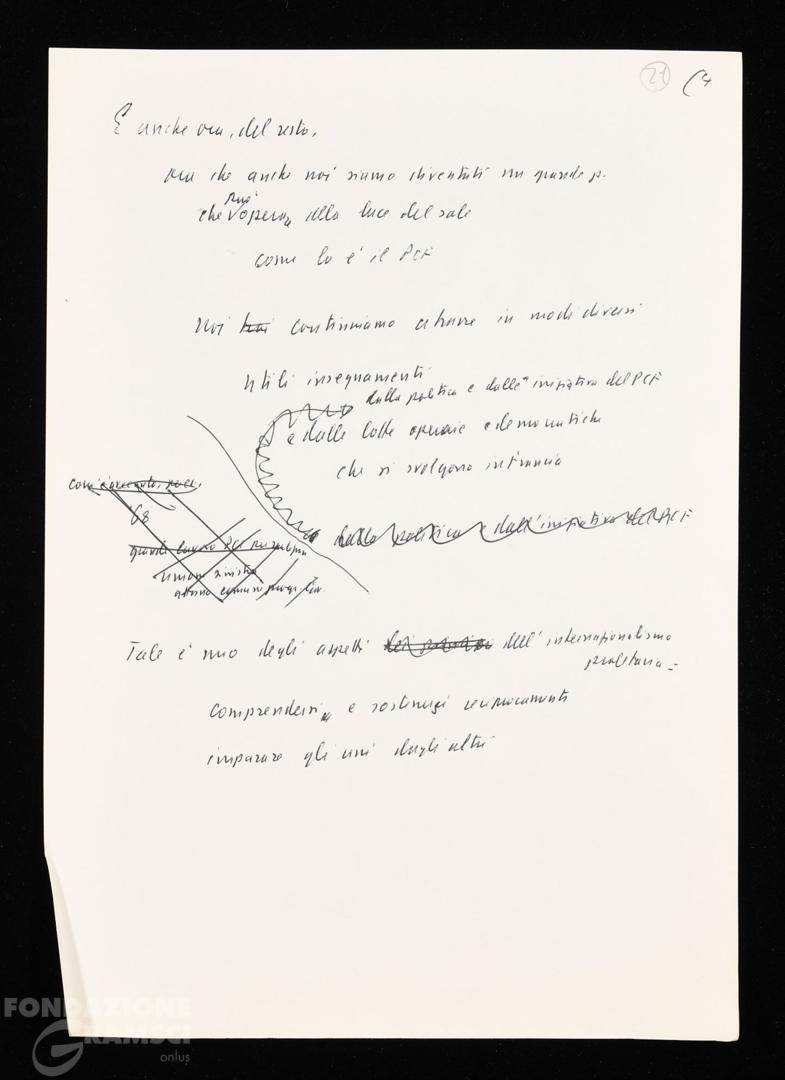 21 (4
E anche ora, del resto,
ora che anche noi siamo diventati un grande p.
può
che operare alla luce del sole
come lo è il PCF
noi continuiamo a trarre in modi diversi
utili insegnamenti
dalla politica e dalle iniziative del PCF
e dalle lotte operaie e democratiche
che si svolgono in Francia
'68
dalla politica e dall'iniziativa del PCF
unione sinistra
Tale è uno degli aspetti dell'internazionalismo
proletario =
comprendersi e sostenersi reciprocamente
imparare gli uni dagli altri
FONDAZIONE
GRAMSCI
onlus